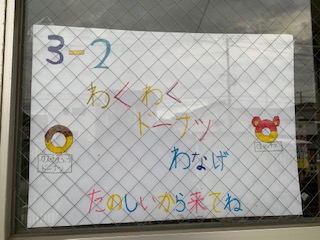 3-2
わくわく
ドーナツ
わなげ
たのしいから来てね